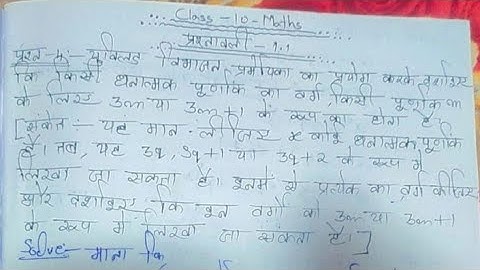 Class - 10 - Maths
प्रश्नावली - 1.1
प्रश्न-4:- यूक्लिड विभाजन प्रमेयिका का प्रयोग करके दर्शाइए
कि किसी धनात्मक पूर्णांक का वर्ग, किसी पूर्णांक m
के लिए 3m या 3m+1 के रूप का होता है।
[संकेत:- यह मान लीजिए x कोई धनात्मक पूर्णांक
है। तब, यह 3q, 3q+1 या 3q+2 के रूप में
लिखा जा सकता है। इनमें से प्रत्येक का वर्ग कीजिए
और दर्शाइए कि इन वर्गों को 3m या 3m+1
के रूप में लिखा जा सकता है।]
Solve:- माना कि